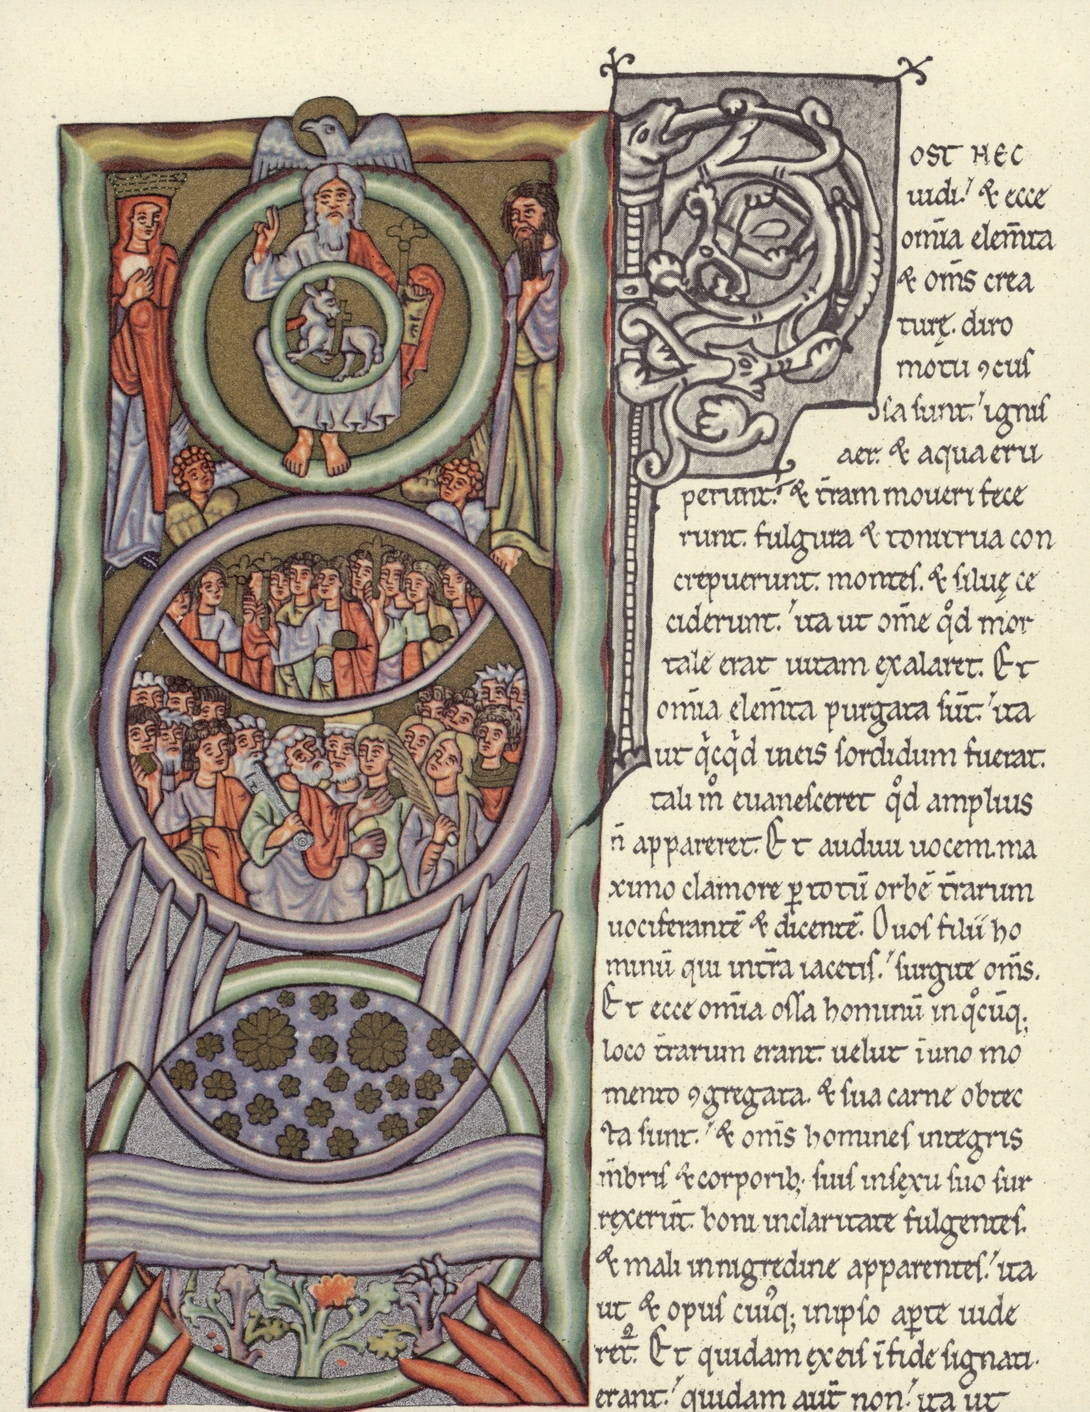 POST HEC
uidi. & ecce
om̄ia elem̄ta
& om̄s crea
turę. diro
motu ꝯcus
sa sunt. ignis
aer. & aqua eru
perunt. & t̄ram moueri fece
runt. fulgura & tonitrua con
crepuerunt. montes. & siluę ce
ciderunt. ita ut om̄e qd̕ mor
tale erat uitam exalaret. Et
om̄ia elem̄ta purgata sūt. ita
ut qͥcqͥd ineis sordidum fuerat.
tali m̊ euanesceret qd̕ amplius
n̄ appareret. Et audiui uocem. ma
ximo clamore ꝑ totū orbē t̄rarum
uociferantē & dicentē. O uos filii ho
minū qui int̄ra iacetis. surgite om̄s.
Et ecce om̄ia ossa hominū inqͦcūq;
loco t̄rarum erant. uelut ī uno mo
mento ꝯgregata. & sua carne obtec
ta sunt. & om̄s homines integris
m̄bris & corporib; suis insexu suo sur
rexerūt. boni inclaritate fulgentes.
& mali innigredine apparentes. ita
ut & opus cuiꝰq; inipso aꝑte uide
ret᷑. Et quidam ex eis ī fide signati
erant. quidam aut̄ non. ita ut